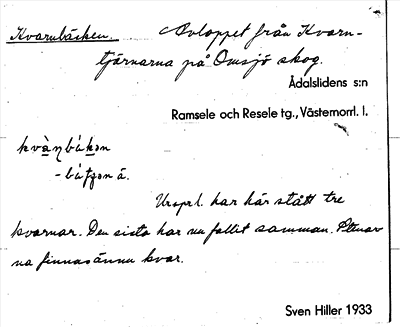 Kvarnbäcken. Avloppet från Kvarn-
tjärnarna på Omsjö skog.
Ådalslidens s:n
Ramsele och Resele tg., Västernorrl. l.
Urspr l. har här stått tre
kvarnar. Den sista har nu fallit samman.
na finnas ännu kvar.
Sven Hiller 1933